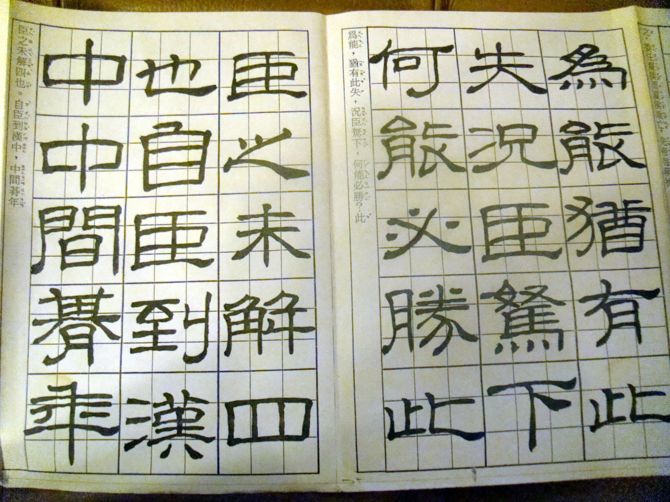 爲能猶有此
失況臣駑下
何能必勝此
爲能，猶有此失，況臣駑下，何能必勝？此
臣之未解四
也自臣到漢
中中間朞年
臣之未解四也。自臣到漢中，中間朞年